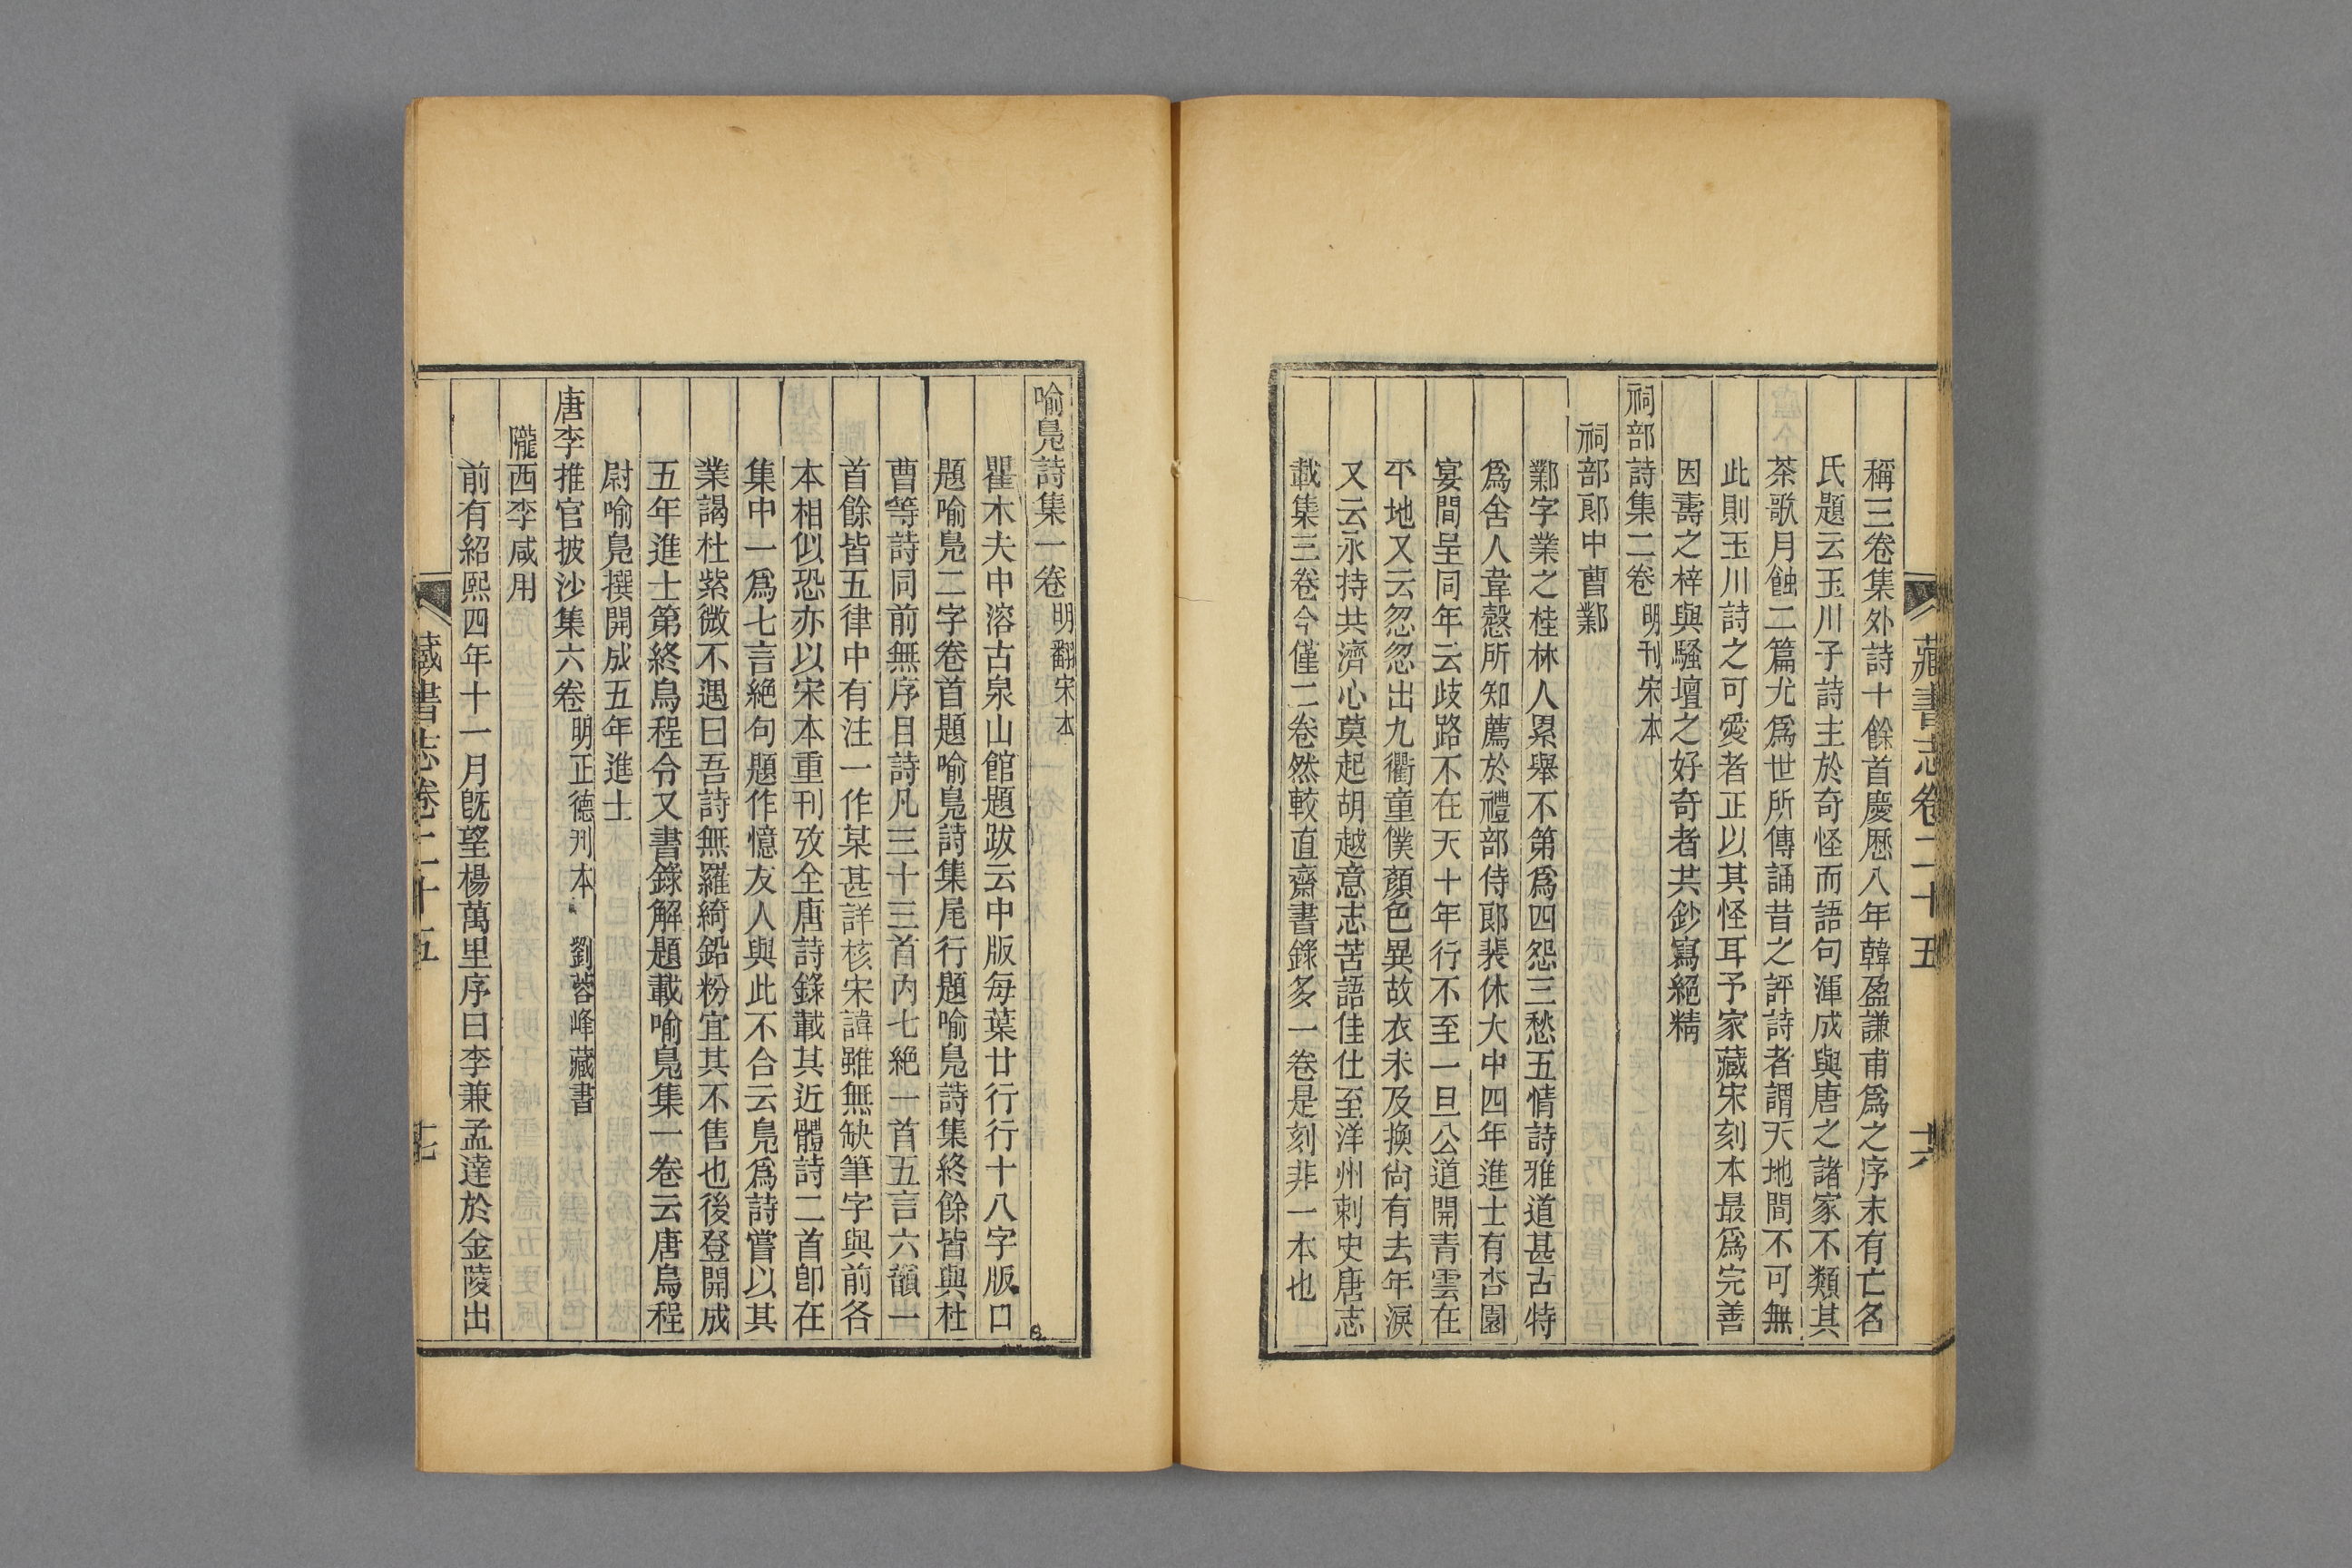 藏書志卷二十五 十六
稱三卷集外詩十餘首慶歷八年韓盈謙甫爲之序末有亡名
氏題云玉川子詩主於奇怪而語句渾成與唐之諸家不類其
茶歌月蝕二篇尤爲世所傳誦昔之評詩者謂天地間不可無
此則玉川詩之可愛者正以其怪耳予家藏宋刻本最爲完善
因壽之梓與騷壇之好奇者共鈔寫絕精
祠部詩集二卷 明刊宋本
祠部郎中曹鄴
鄴字業之桂林人累舉不第爲四怨三愁五情詩雅道甚古特
爲舍人韋慤所知薦於禮部侍郎裴休大中四年進士有杏園
宴間呈同年云歧路不在天十年行不至一旦公道開青雲在
平地又云忽忽出九衢童僕顏色異故衣未及換尙有去年淚
又云永持共濟心莫起胡越意志苦語佳仕至洋州刺史唐志
載集三卷今僅二卷然較直齋書錄多一卷是刻非一本也
喻鳧詩集一卷 明翻宋本
瞿木夫中溶古泉山館題跋云中版每葉廿行行十八字版口
題喻鳧二字卷首題喻鳧詩集尾行題喻鳧詩集終餘皆與杜
曹等詩同前無序目詩凡三十三首內七絶一首五言六韻一
首餘皆五律中有注一作某甚詳核宋諱雖無缺筆字與前各
本相似恐亦以宋本重刊攷全唐詩錄載其近體詩二首卽在
集中一爲七言絕句題作憶友人與此不合云鳧爲詩嘗以其
業謁杜紫微不遇曰吾詩無羅綺鉛粉宜其不售也後登開成
五年進士第終烏程令又書錄解題載喻鳧集一卷云唐烏程
尉喻鳧撰開成五年進士
唐李推官披沙集六卷 明正德刋本 劉蓉峰藏書
隴西李咸用
前有紹熙四年十一月旣望楊萬里序曰李兼孟達於金陵出
藏書志卷二十五 十七